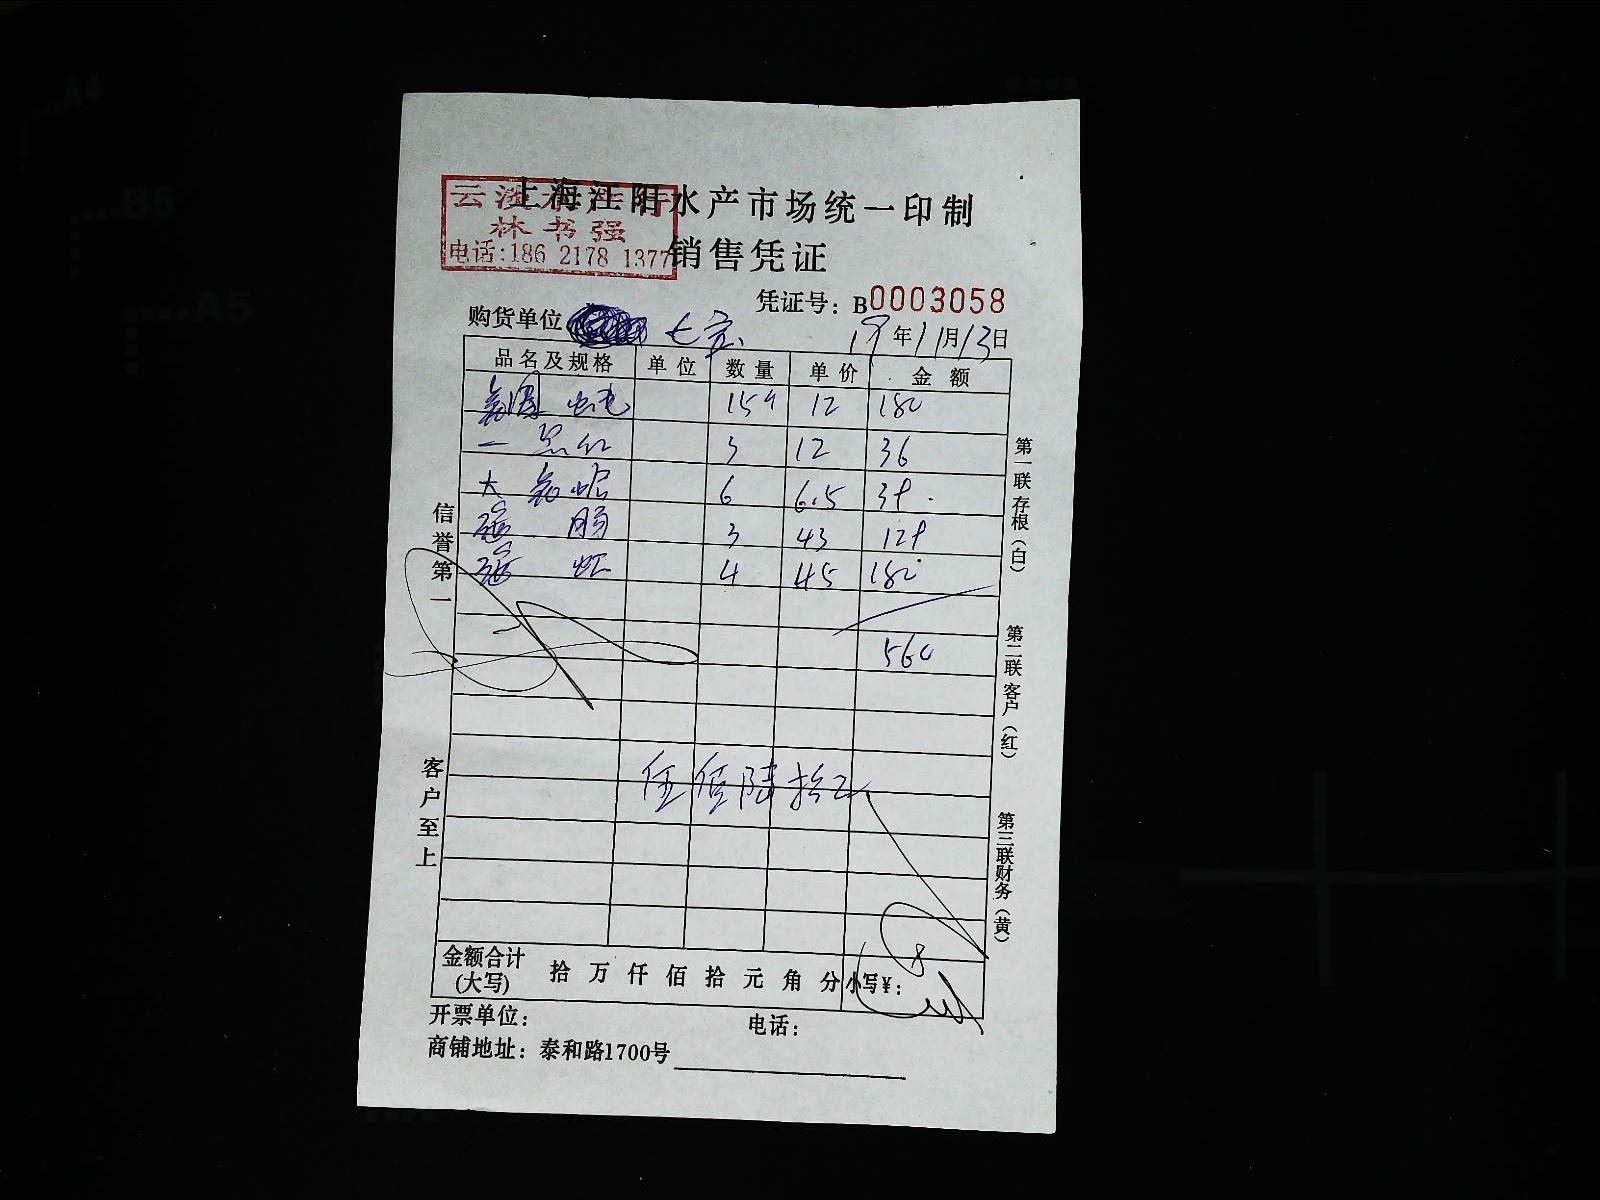 上海江阳水产市场统一印制
云
林书强
电话:186 2178 1377
销售凭证
凭证号: B0003058
购货单位 七宝 19年11月13日
品名及规格 单位 数量 单价 金额
15 12 180
3 12 36
大 6 6.5 39.
3 43 129
4 45 180
560
伍佰陆拾元
金额合计(大写) 拾 万 仟 佰 拾 元 角 分 小写¥:
开票单位: 电话:
商铺地址: 泰和路1700号
信誉第一
客户至上
第一联 存根(白)
第二联 客户(红)
第三联 财务(黄)
A4
B5
A5